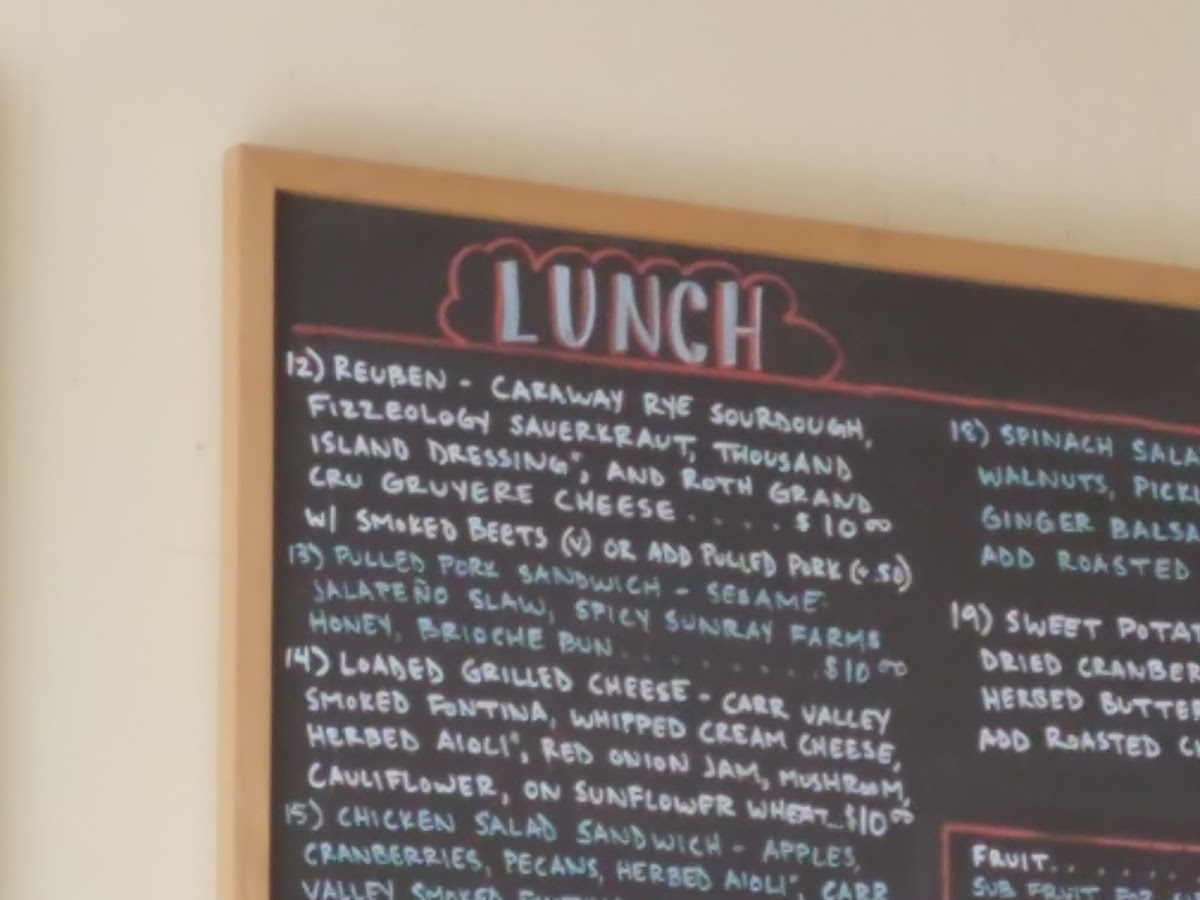 LUNCH
12) REUBEN - CARAWAY RYE SOURDOUGH,
FIZZEOLOGY SAUERKRAUT, THOUSAND
ISLAND DRESSING*, AND ROTH GRAND
CRU GRUYERE CHEESE . . . . . $10 00
W/ SMOKED BEETS (V) OR ADD PULLED PORK (+.50)
13) PULLED PORK SANDWICH - SESAME
JALAPEÑO SLAW, SPICY SUNRAY FARMS
HONEY, BRIOCHE BUN . . . . . . . . $10 00
14) LOADED GRILLED CHEESE - CARR VALLEY
SMOKED FONTINA, WHIPPED CREAM CHEESE,
HERBED AIOLI*, RED ONION JAM, MUSHROOM,
CAULIFLOWER, ON SUNFLOWER WHEAT...$10 00
15) CHICKEN SALAD SANDWICH - APPLES,
CRANBERRIES, PECANS, HERBED AIOLI*, CARR
VALLEY SMOKED
18) SPINACH SALA
WALNUTS, PICK
GINGER BALSA
ADD ROASTED
19) SWEET POTA
DRIED CRANBER
HERBED BUTTE
ADD ROASTED
FRUIT. . . . . . .
SUB FRUIT FOR